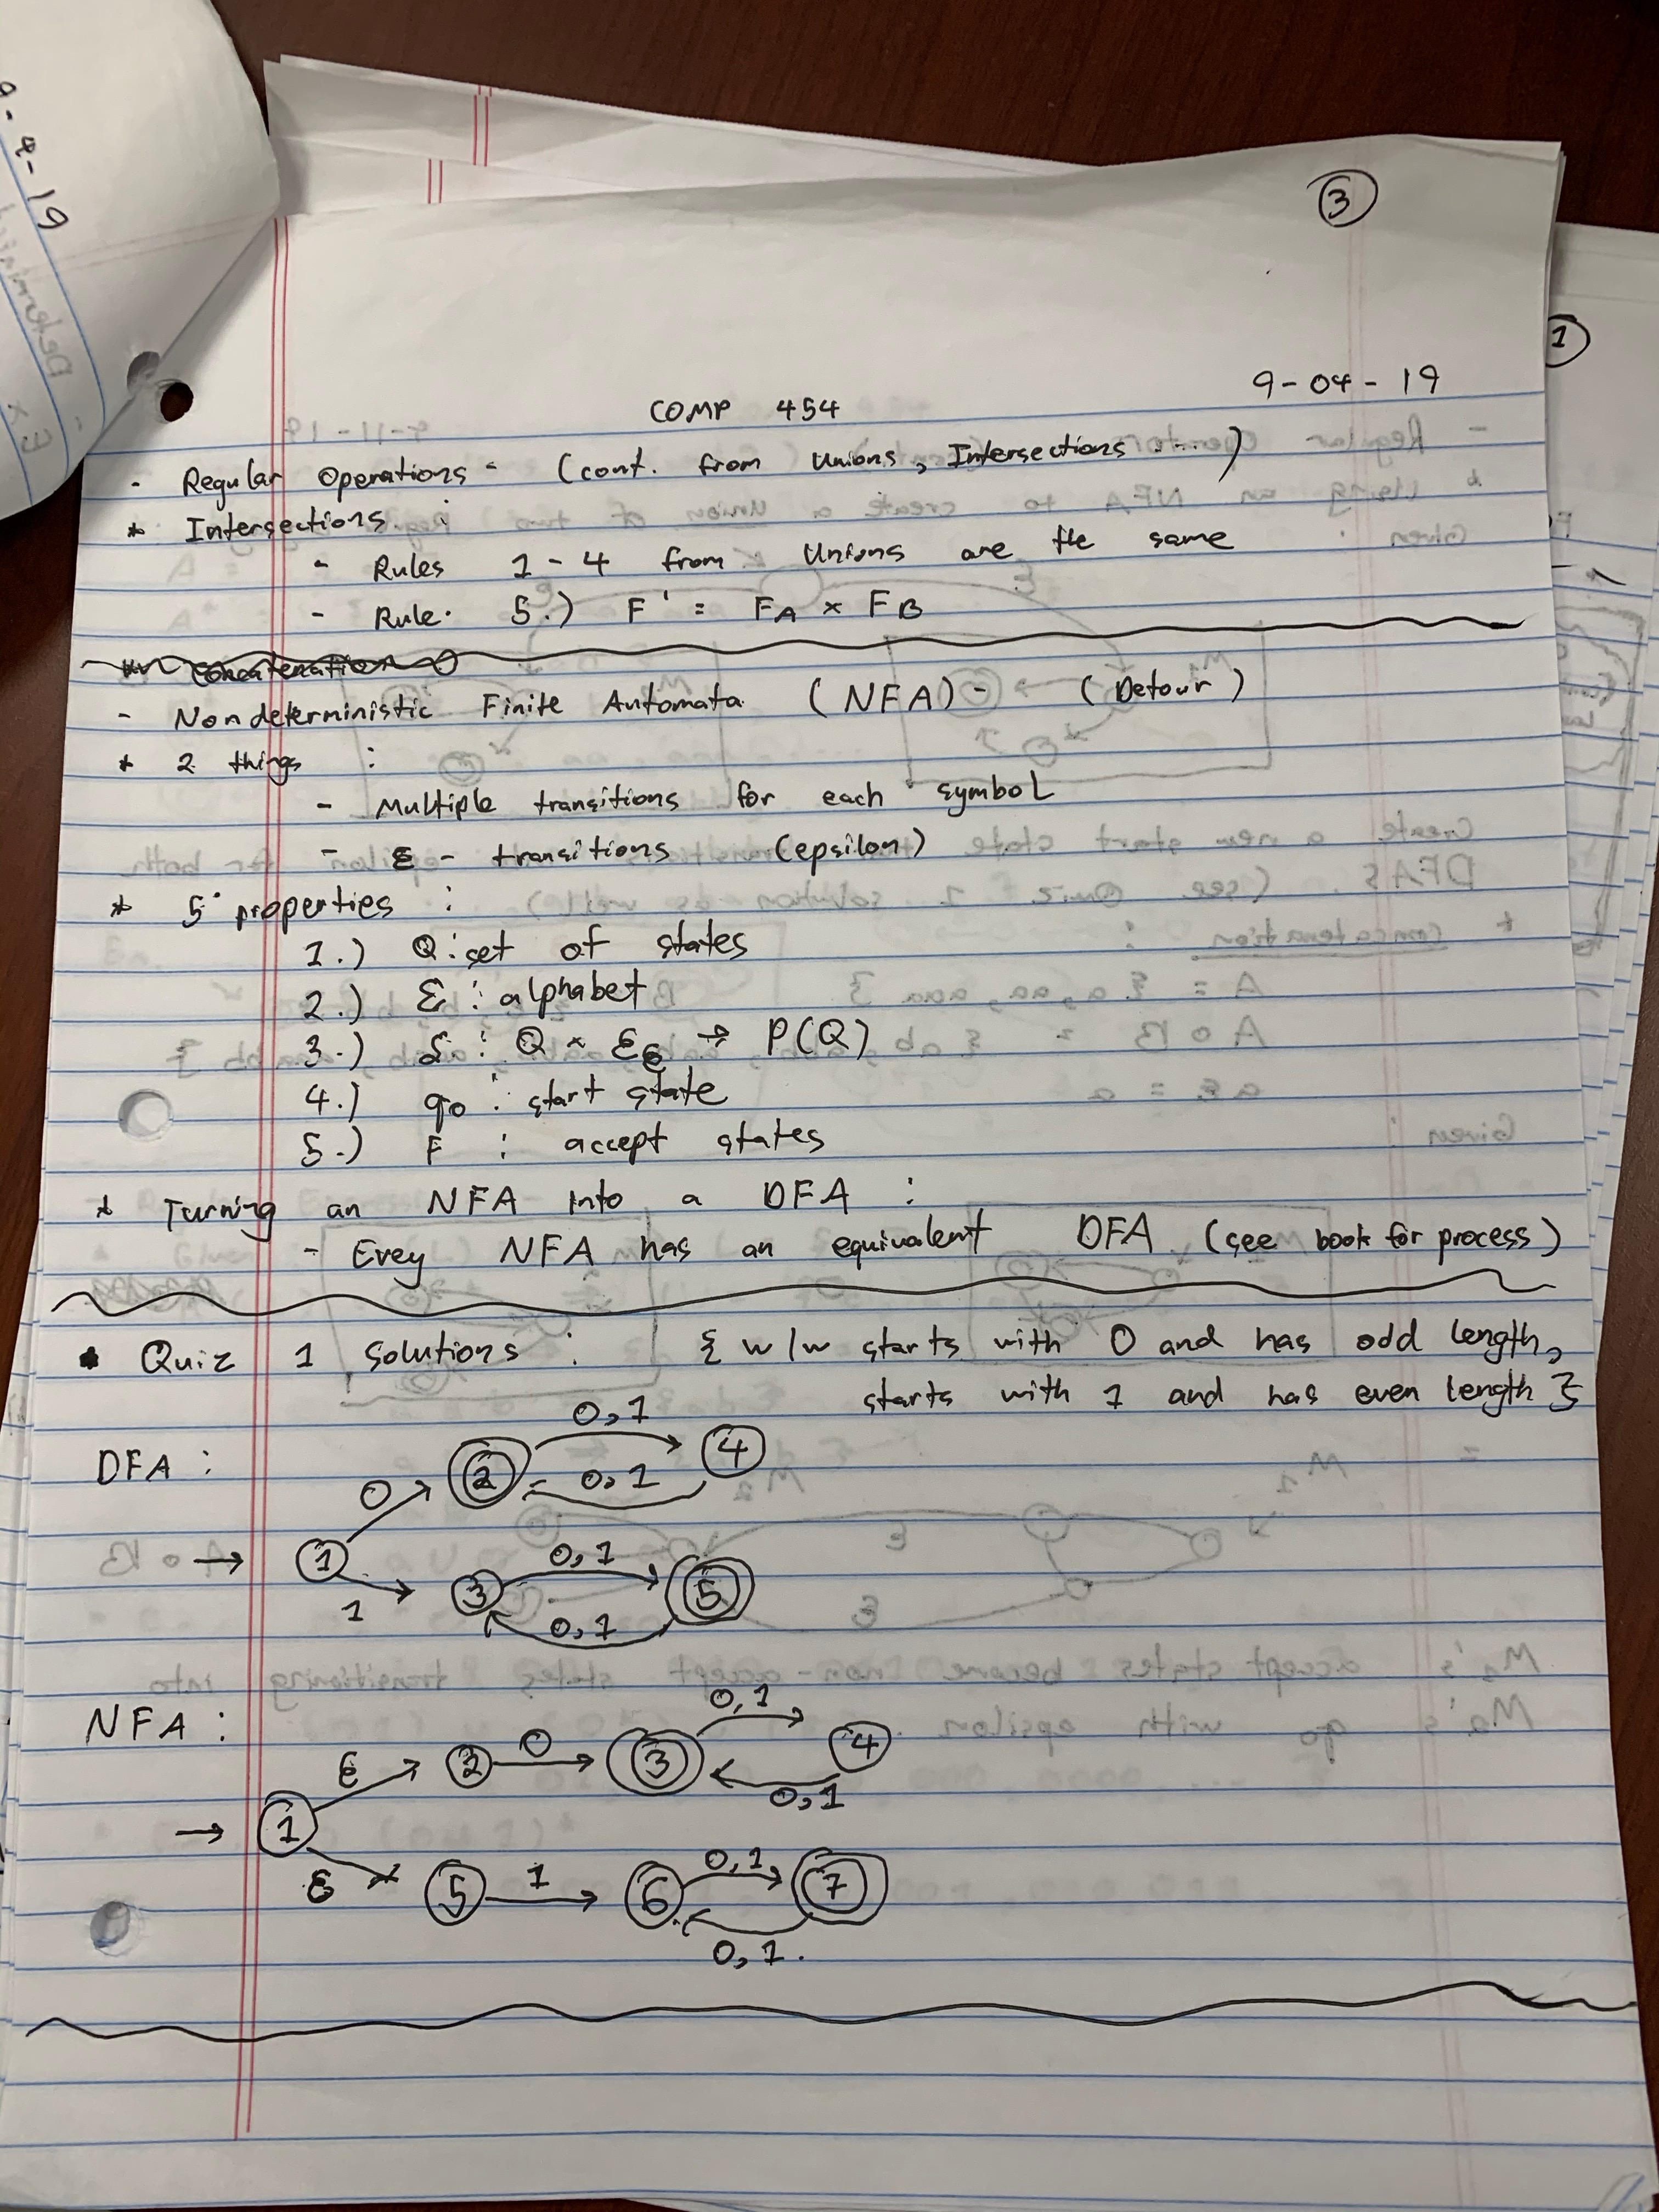 9-4-19
3
1
COMP 454
9-04-19
- Regular Operations - (cont. from Unions, Intersections ...)
* Intersections :
- Rules 1-4 from Unions are the same
- Rule 5.) F' = FA × FB
Concatenation
- Nondeterministic Finite Automata (NFA) - (Detour)
* 2 things :
- Multiple transitions for each symbol
- ε - transitions (epsilon)
* 5 properties :
1.) Q : set of states
2.) Σ : alphabet
3.) δ : Q × Σε → P(Q)
4.) q0 : start state
5.) F : accept states
* Turning an NFA into a DFA :
- Evey NFA has an equivalent DFA (see book for process)
* Quiz 1 Solutions : { w/w starts with 0 and has odd length,
starts with 1 and has even length }
DFA :
0,1
2 4
0 0,1
→ 1
0,1
1 3 5
0,1
NFA :
0,1
ε 2 0 3 4
0,1
→ 1
ε 5 1 6 0,1 7
0,1